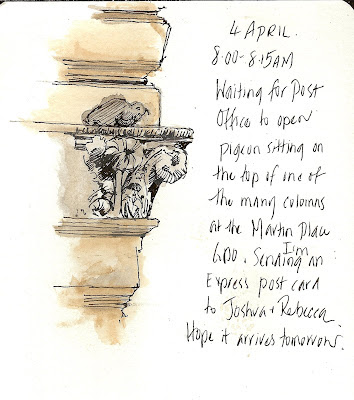 4 APRIL.
8:00-8:15AM
Waiting for Post
Office to open
pigeon sitting on
the top of one of
the many columns
at the Martin Place
GPO. I'm Sending an
Express post card
to Joshua + Rebecca
Hope it arrives tomorrow.